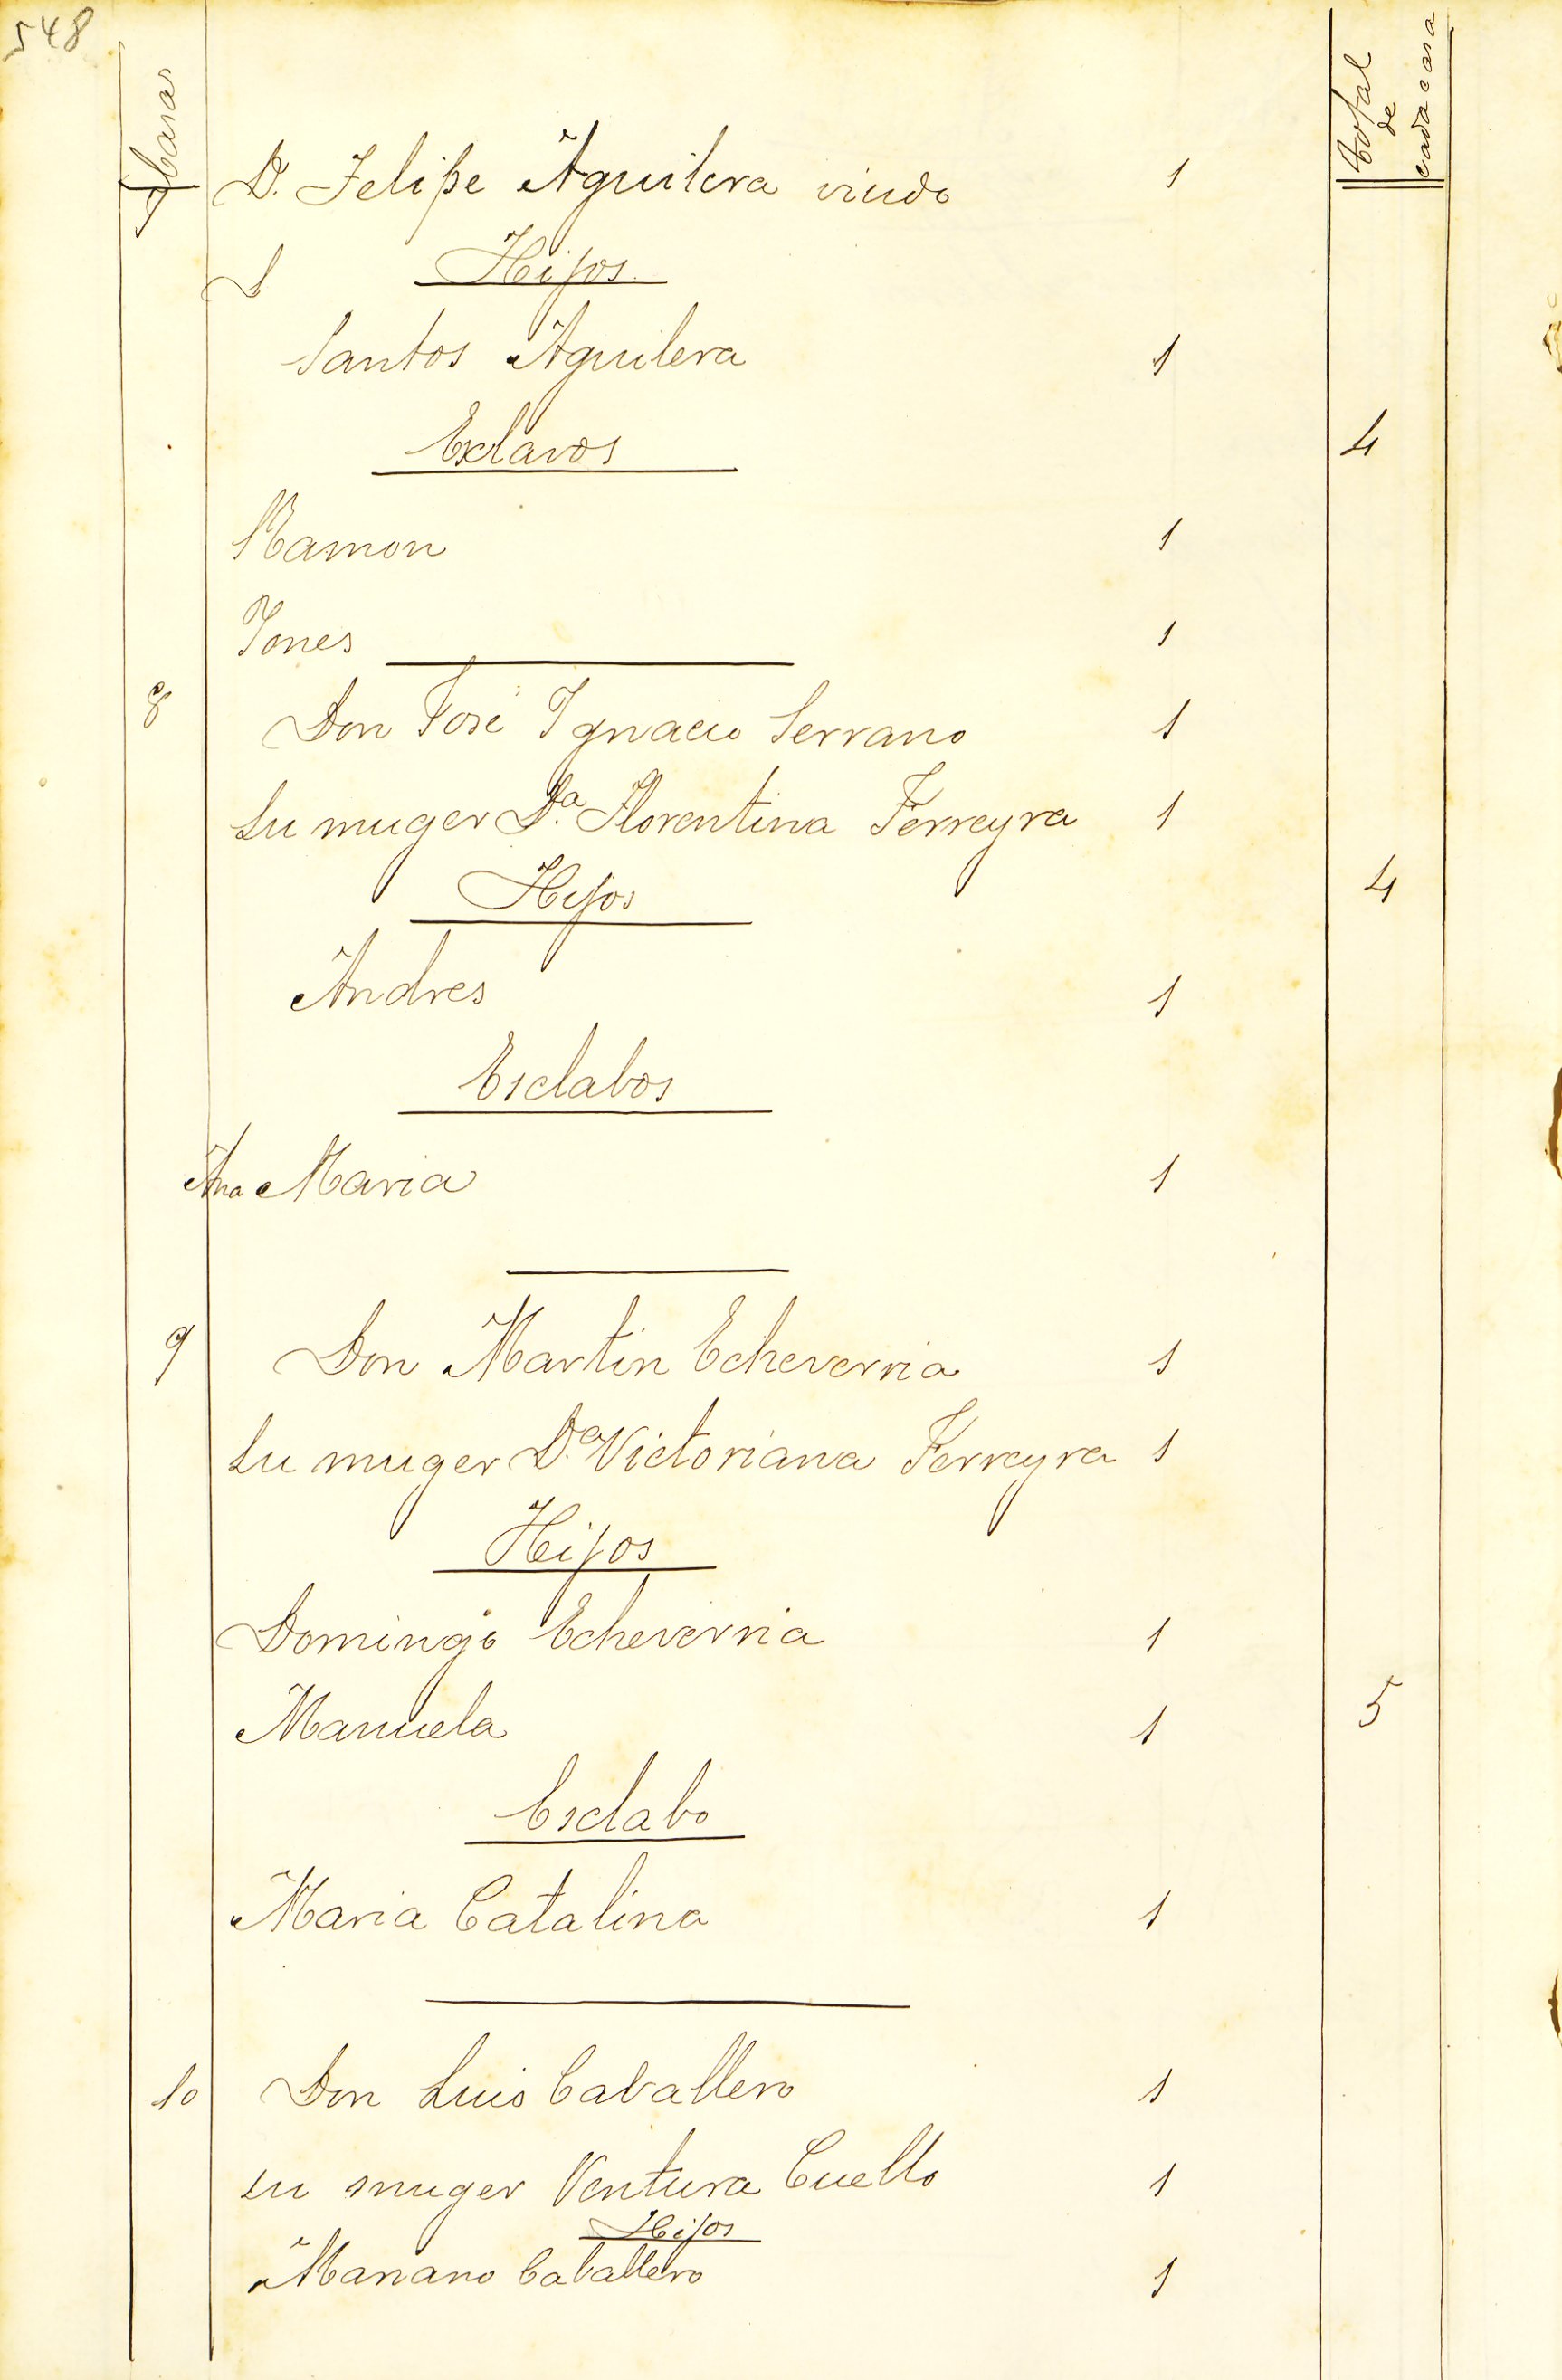 548
Casas
Total
de
cada casa
7 D. Felipe Aguilera viudo 1
Hijos
Santos Aguilera 1
Esclavos 4
Ramon 1
Ynes 1
8 Don José Ygnacio Serrano 1
Su muger D.ª Florentina Ferreyra 1
Hijos 4
Andres 1
Esclabos
Ana Maria 1
9 Don Martin Echeverria 1
Su muger D.ª Victoriana Ferreyra 1
Hijos
Domingo Echeverria 1
Manuela 1 5
Esclabo
Maria Catalina 1
10 Don Luis Caballero 1
su muger Ventura Cuello 1
Hijos
Mariano Caballero 1